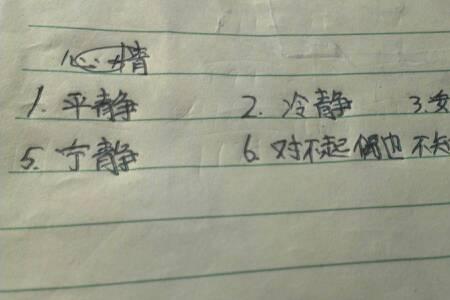 心情
1. 平静 2. 冷静 3. 安
5. 宁静 6. 对不起 俺也 不知